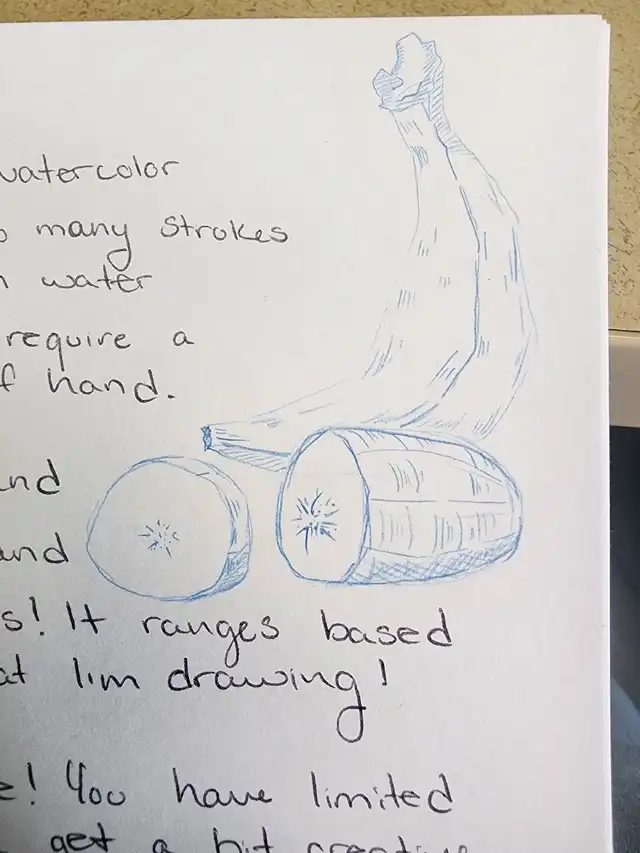 watercolor
many strokes
water
require a
hand.
and
and
s! It ranges based
at I'm drawing!
e! You have limited
get a bit creative